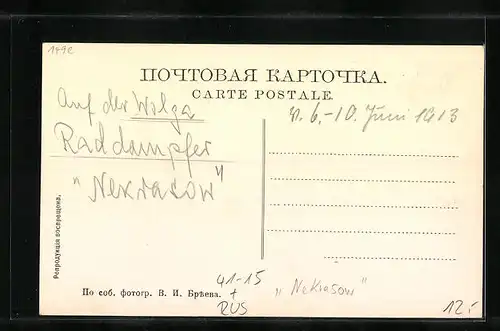 149E
ПОЧТОВАЯ КАРТОЧКА.
CARTE POSTALE.
Auf der Wolga
v. 6.-10. Juni 1913
Raddampfer
"Nekrasow"
Репродукція воспрещена.
По соб. фотогр. В. И. Брѣева.
41-15
+
RUS
"Nekrasow"
12.-